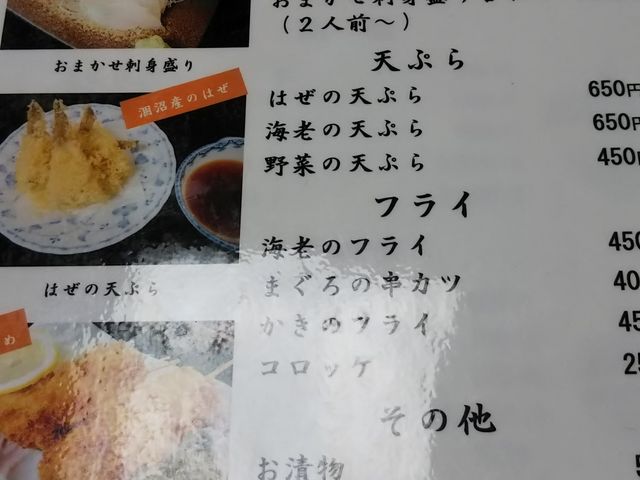 (2人前〜)
おまかせ刺身盛り
天ぷら
涸沼産のはぜ
はぜの天ぷら 650円
海老の天ぷら 650円
野菜の天ぷら 450円
フライ
海老のフライ 450
はぜの天ぷら
まぐろの串カツ 40
かきのフライ 45
コロッケ 25
その他
お漬物